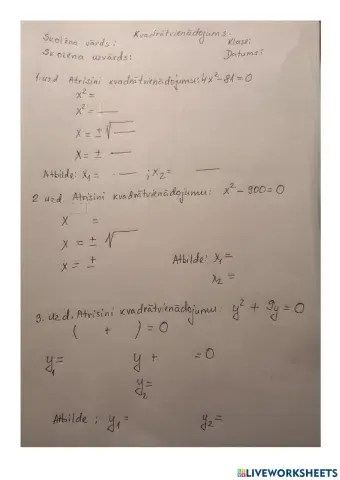 Kvadrātvienādojums.
Skolēna vārds: Klase:
Skolēna uzvārds: Datums:
1. uzd. Atrisini kvadrātvienādojumu: 4x² - 81 = 0
x² =
x² = —
x = ± √—
x = ± —
Atbilde: x₁ = — ; x₂ = —
2 uzd. Atrisini kvadrātvienādojumu: x² - 900 = 0
x =
x = ± √
x = ±
Atbilde: x₁ =
x₂ =
3. uzd. Atrisini kvadrātvienādojumu: y² + 9y = 0
( + ) = 0
y₁ = y + = 0
y₂ =
Atbilde: y₁ = y₂ =
LIVEWORKSHEETS